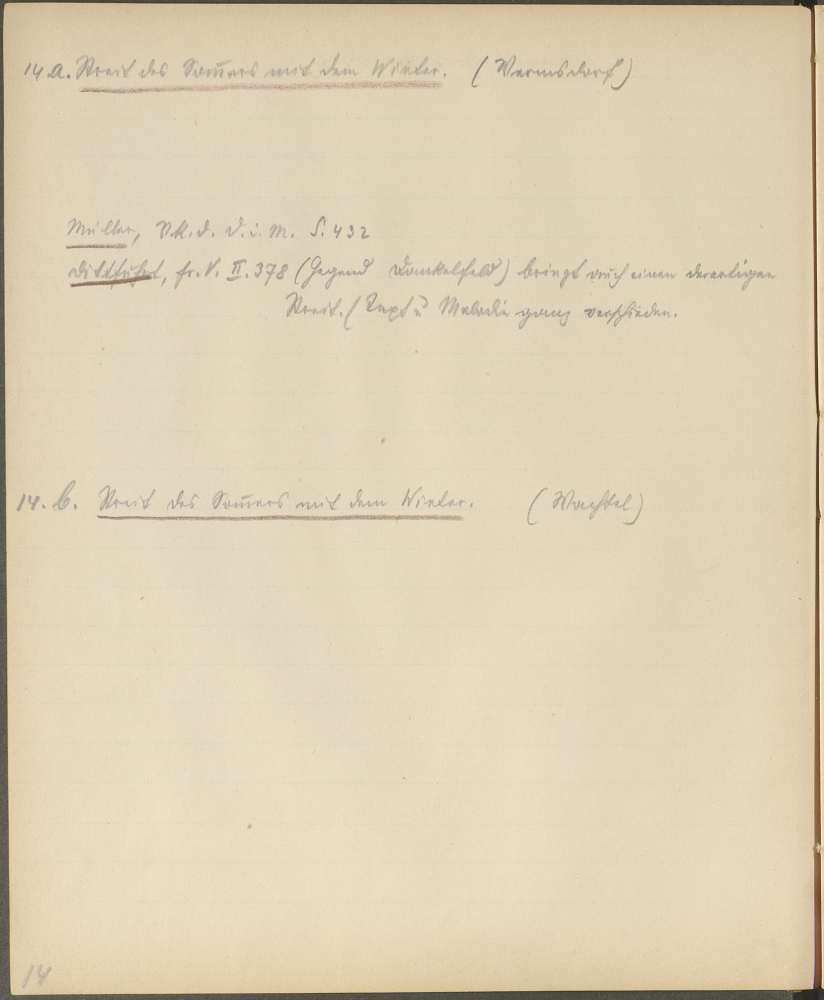 14 a. Streit des Som̄ers mit dem Winter. (Wermsdorf)
Müller, Vk. d. D. i. M. S. 432
Ditfurth, fr. V. II. 378 (Gegend Dankelfeld) bringt auch einen derartigen
Streit. (Text u Melodie ganz verschieden.
14. b. Streit des Som̄ers mit dem Winter. (Wachtel)
14